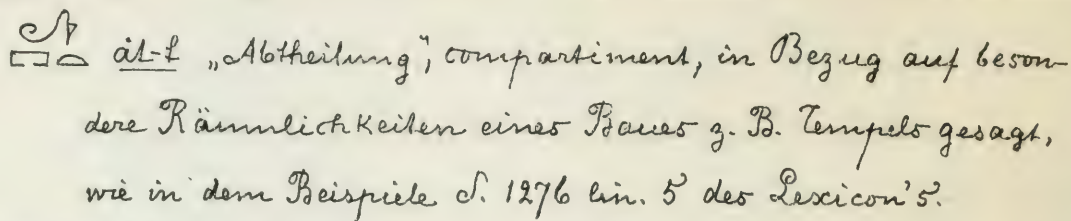 át-t „Abtheilung", compartiment, in Bezug auf beson-
dere Räumlichkeiten eines Baues z. B. Tempels gesagt,
wie in dem Beispiele S. 1276 lin. 5 des Lexicon's.